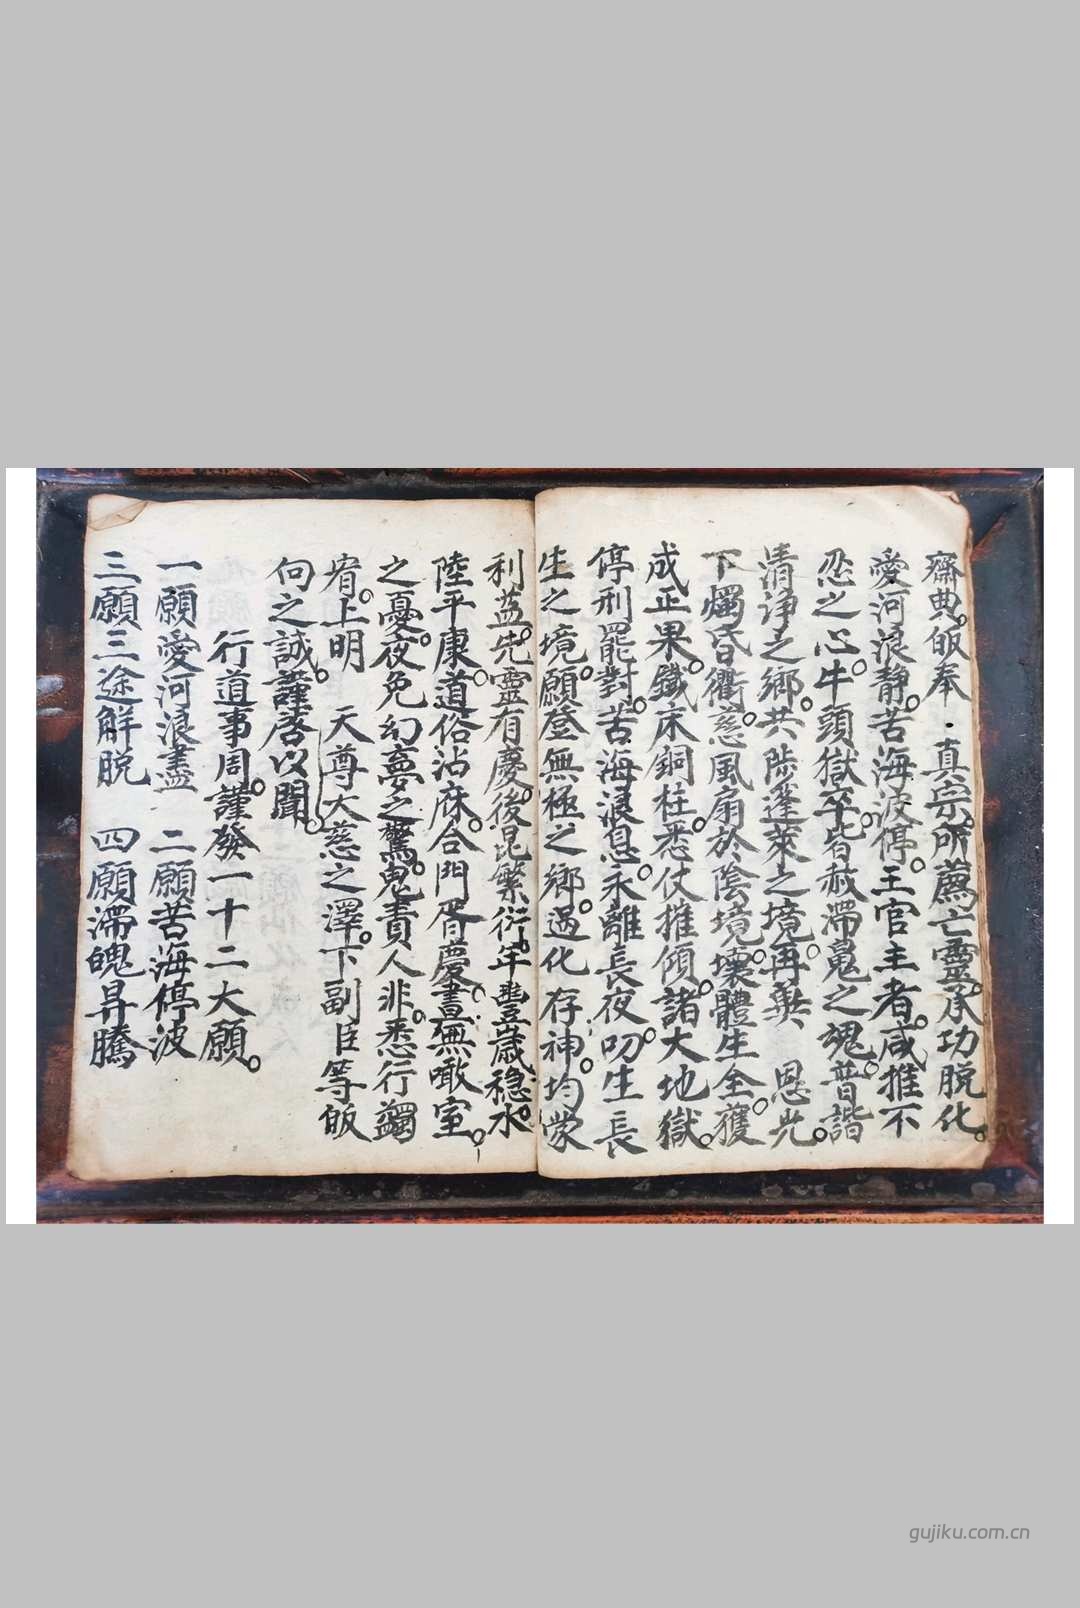 齋典。皈奉·真宗。所薦亡靈。承功脫化。
愛河浪静。苦海波停。王官主者。咸推不
忍之心。牛頭獄卒。皆赦滯䰟之魂。普諧
清净之鄉。共陟蓬萊之境。再藝 恩光。
下燭昏衢。慈風扇於陰境。壞體生全。獲
成正果。鐵床銅柱。悉仗摧傾。諸大地獄。
停刑罷對。苦海浪息。永離長夜。叨生長
生之境。願登無極之鄉。過化存神。均蒙
利益。先靈有慶。後昆繁衍。年豐歲稔。水
陸平康。道俗沾庥。合門胥慶。晝無瞰室。
之憂。夜免幻夢之驚。鬼責人非。悉行蠲
宥。上明 天尊大慈之澤。下副臣等皈
向之誠。謹啓以聞。
行道事周。謹發一十二大願。
一願愛河浪盡 二願苦海停波
三願三途解脫 四願滯魄昇騰
gujiku.com.cn